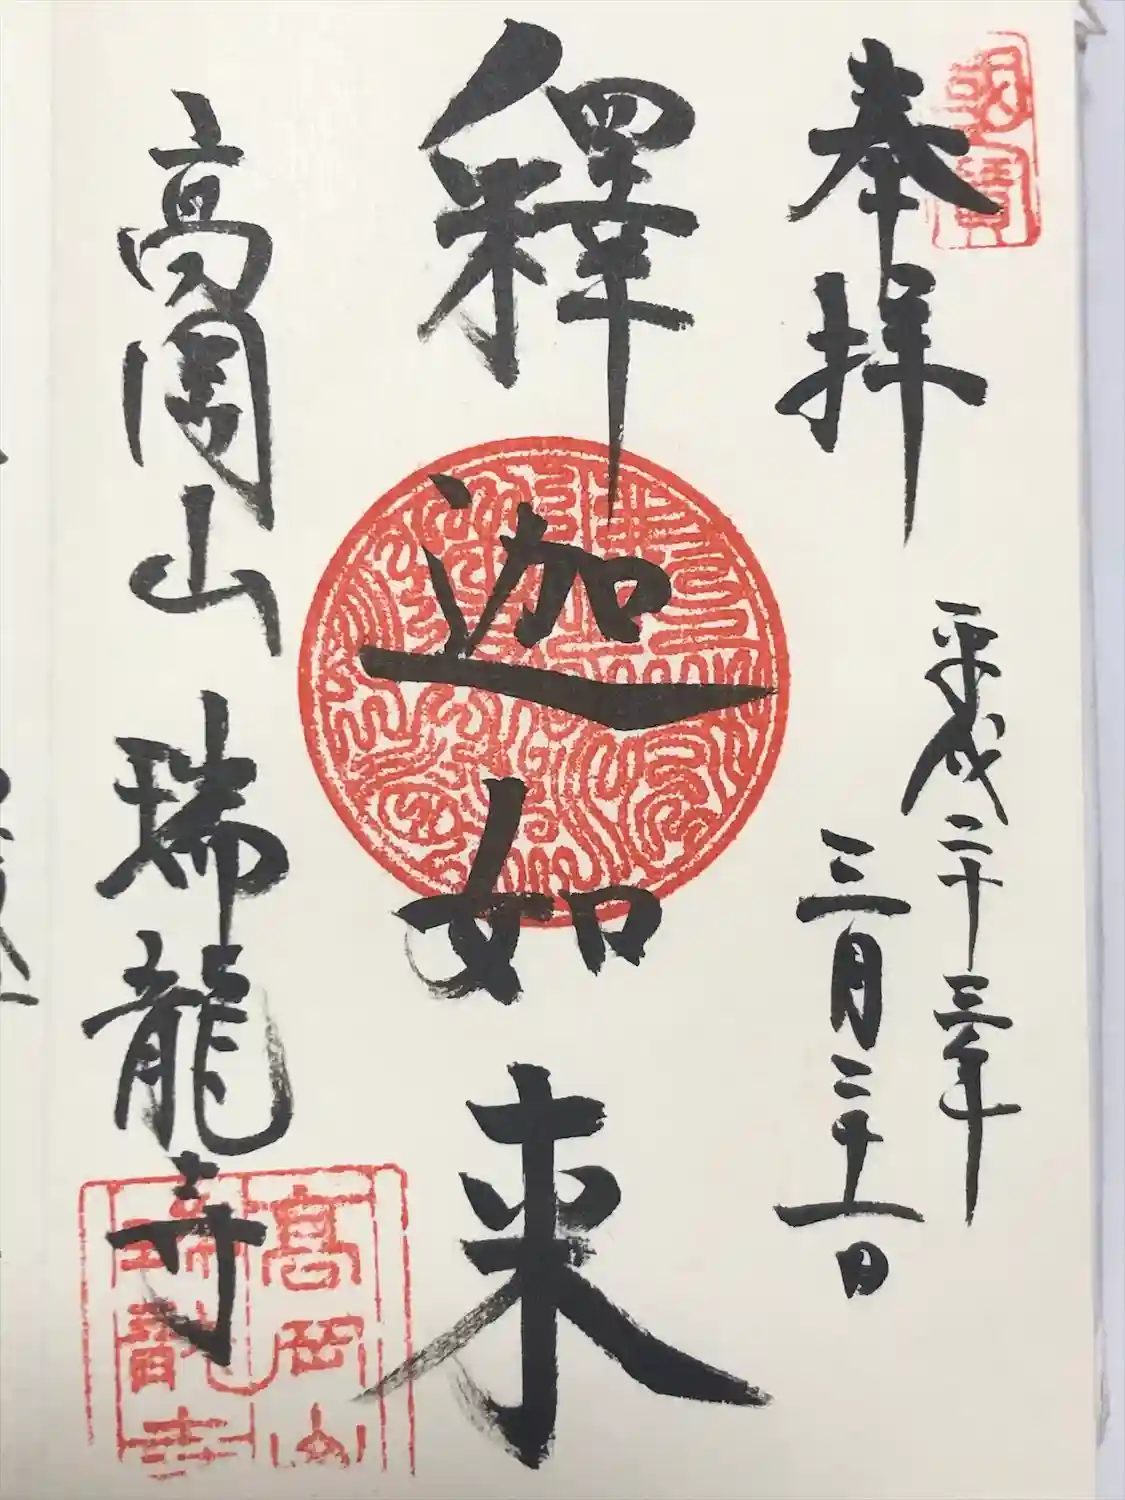 奉拝
平成二十三年
三月二十一日
釋迦如来
高岡山瑞龍寺
高岡山
瑞龍寺